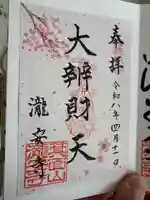 奉拝
令和八年四月十一日
大辨財天
瀧安寺